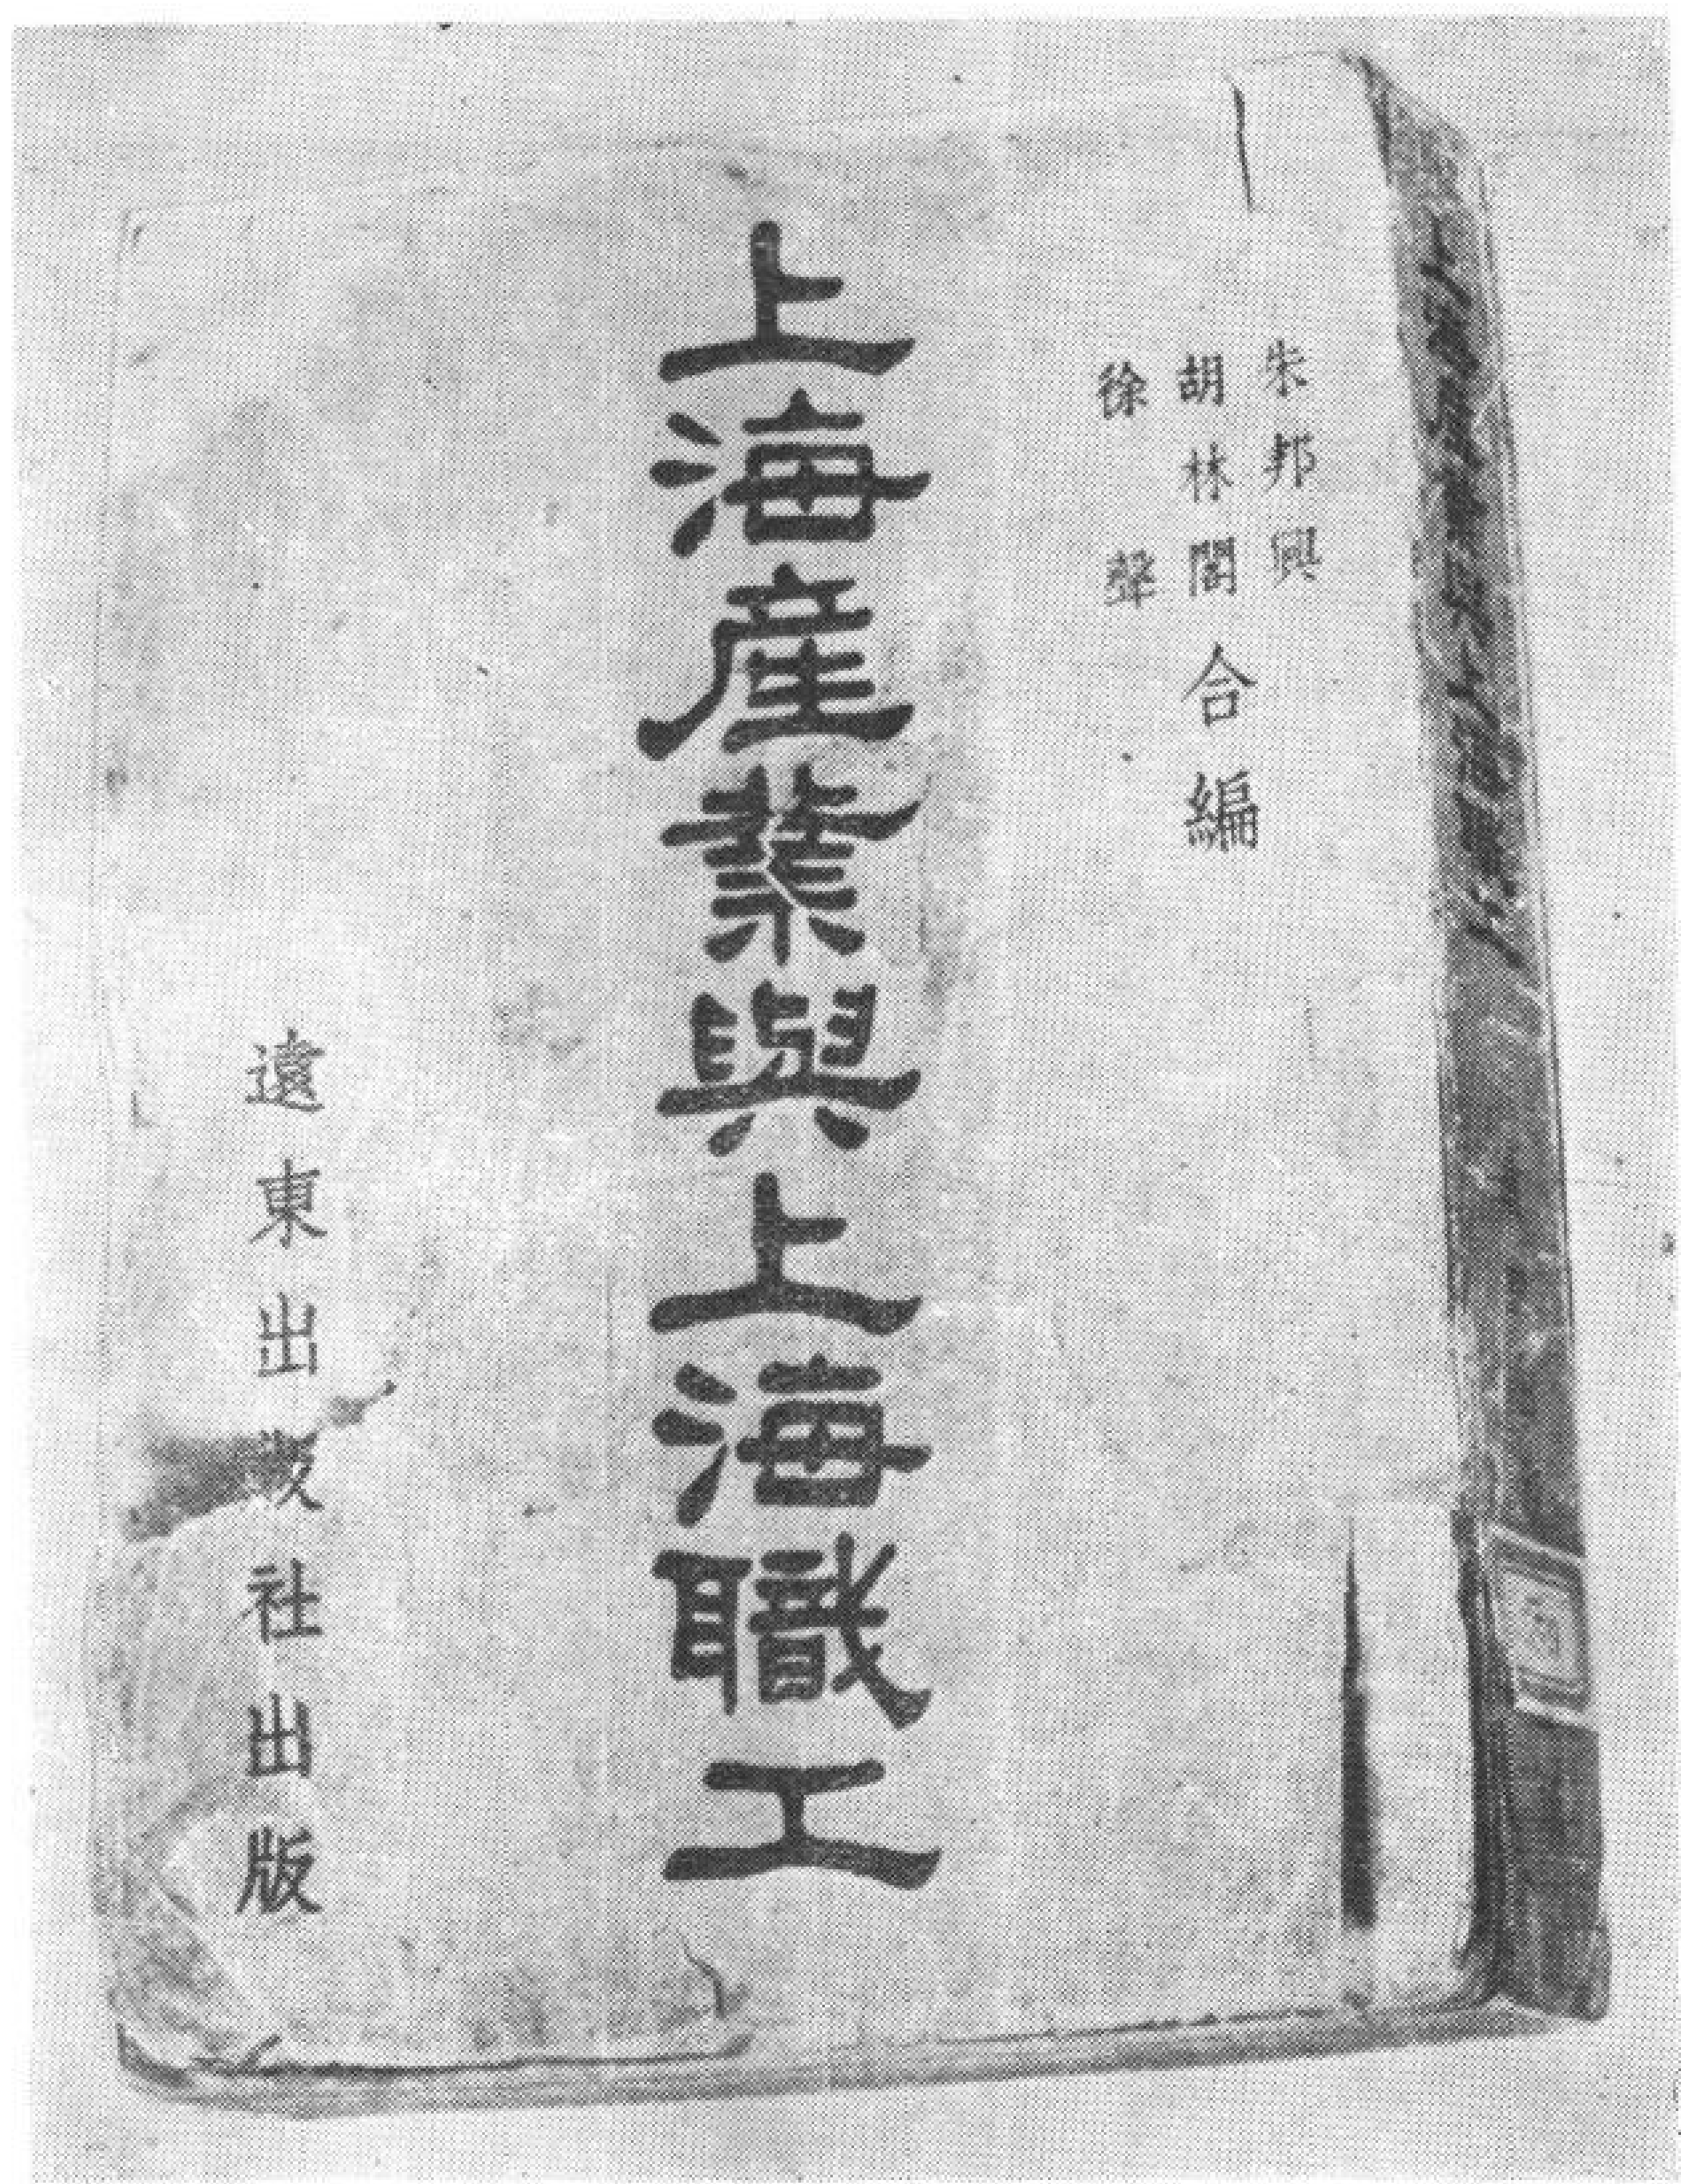 朱邦興
胡林閣
徐聲
合編
上海產業與上海職工
遠東出版社出版